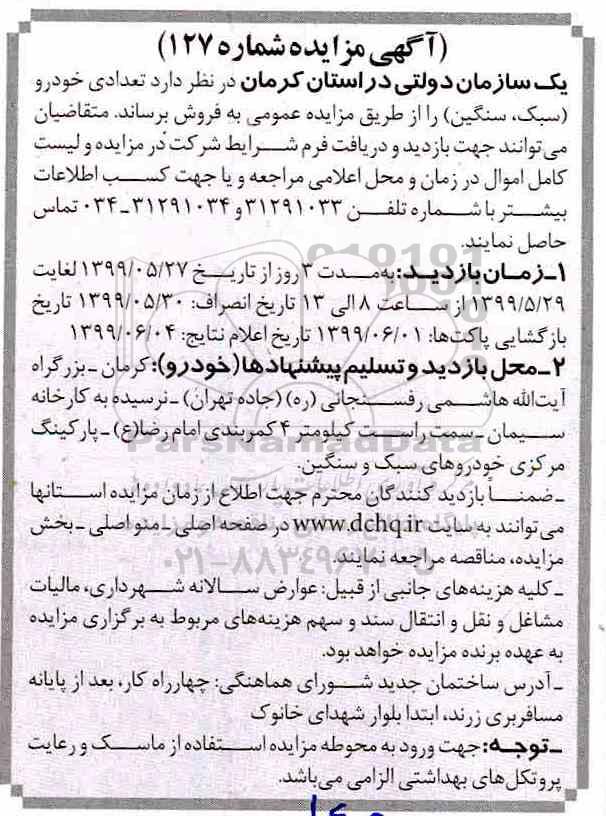 (آگهی مزایده شماره ۱۲۷)
یک سازمان دولتی در استان کرمان در نظر دارد تعدادی خودرو
(سبک، سنگین) را از طریق مزایده عمومی به فروش برساند. متقاضیان
می‌توانند جهت بازدید و دریافت فرم شرایط شرکت در مزایده و لیست
کامل اموال در زمان و محل اعلامی مراجعه و یا جهت کسب اطلاعات
بیشتر با شماره تلفن ۳۱۲۹۱۰۳۳ و ۳۱۲۹۱۰۳۴-۰۳۴ تماس
حاصل نمایند.
۱-زمان بازدید: به‌مدت ۳ روز از تاریخ ۱۳۹۹/۰۵/۲۷ لغایت
۱۳۹۹/۵/۲۹ از ساعت ۸ الی ۱۳ تاریخ انصراف: ۱۳۹۹/۰۵/۳۰ تاریخ
بازگشایی پاکت‌ها: ۱۳۹۹/۰۶/۰۱ تاریخ اعلام نتایج: ۱۳۹۹/۰۶/۰۴
۲-محل بازدید و تسلیم پیشنهادها (خودرو): کرمان - بزرگراه
آیت‌الله هاشمی رفسنجانی (ره) (جاده تهران) - نرسیده به کارخانه
سیمان - سمت راست کیلومتر ۴ کمربندی امام رضا(ع) - پارکینگ
مرکزی خودروهای سبک و سنگین.
- ضمناً بازدید کنندگان محترم جهت اطلاع از زمان مزایده استانها
می‌توانند به سایت www.dchq.ir در صفحه اصلی - منو اصلی - بخش
مزایده، مناقصه مراجعه نمایند
- کلیه هزینه‌های جانبی از قبیل: عوارض سالانه شهرداری، مالیات
مشاغل و نقل و انتقال سند و سهم هزینه‌های مربوط به برگزاری مزایده
به عهده برنده مزایده خواهد بود.
- آدرس ساختمان جدید شورای هماهنگی: چهارراه کار، بعد از پایانه
مسافربری زرند، ابتدا بلوار شهدای خانوک
- توجه: جهت ورود به محوطه مزایده استفاده از ماسک و رعایت
پروتکل‌های بهداشتی الزامی می‌باشد.
ParsNamadData